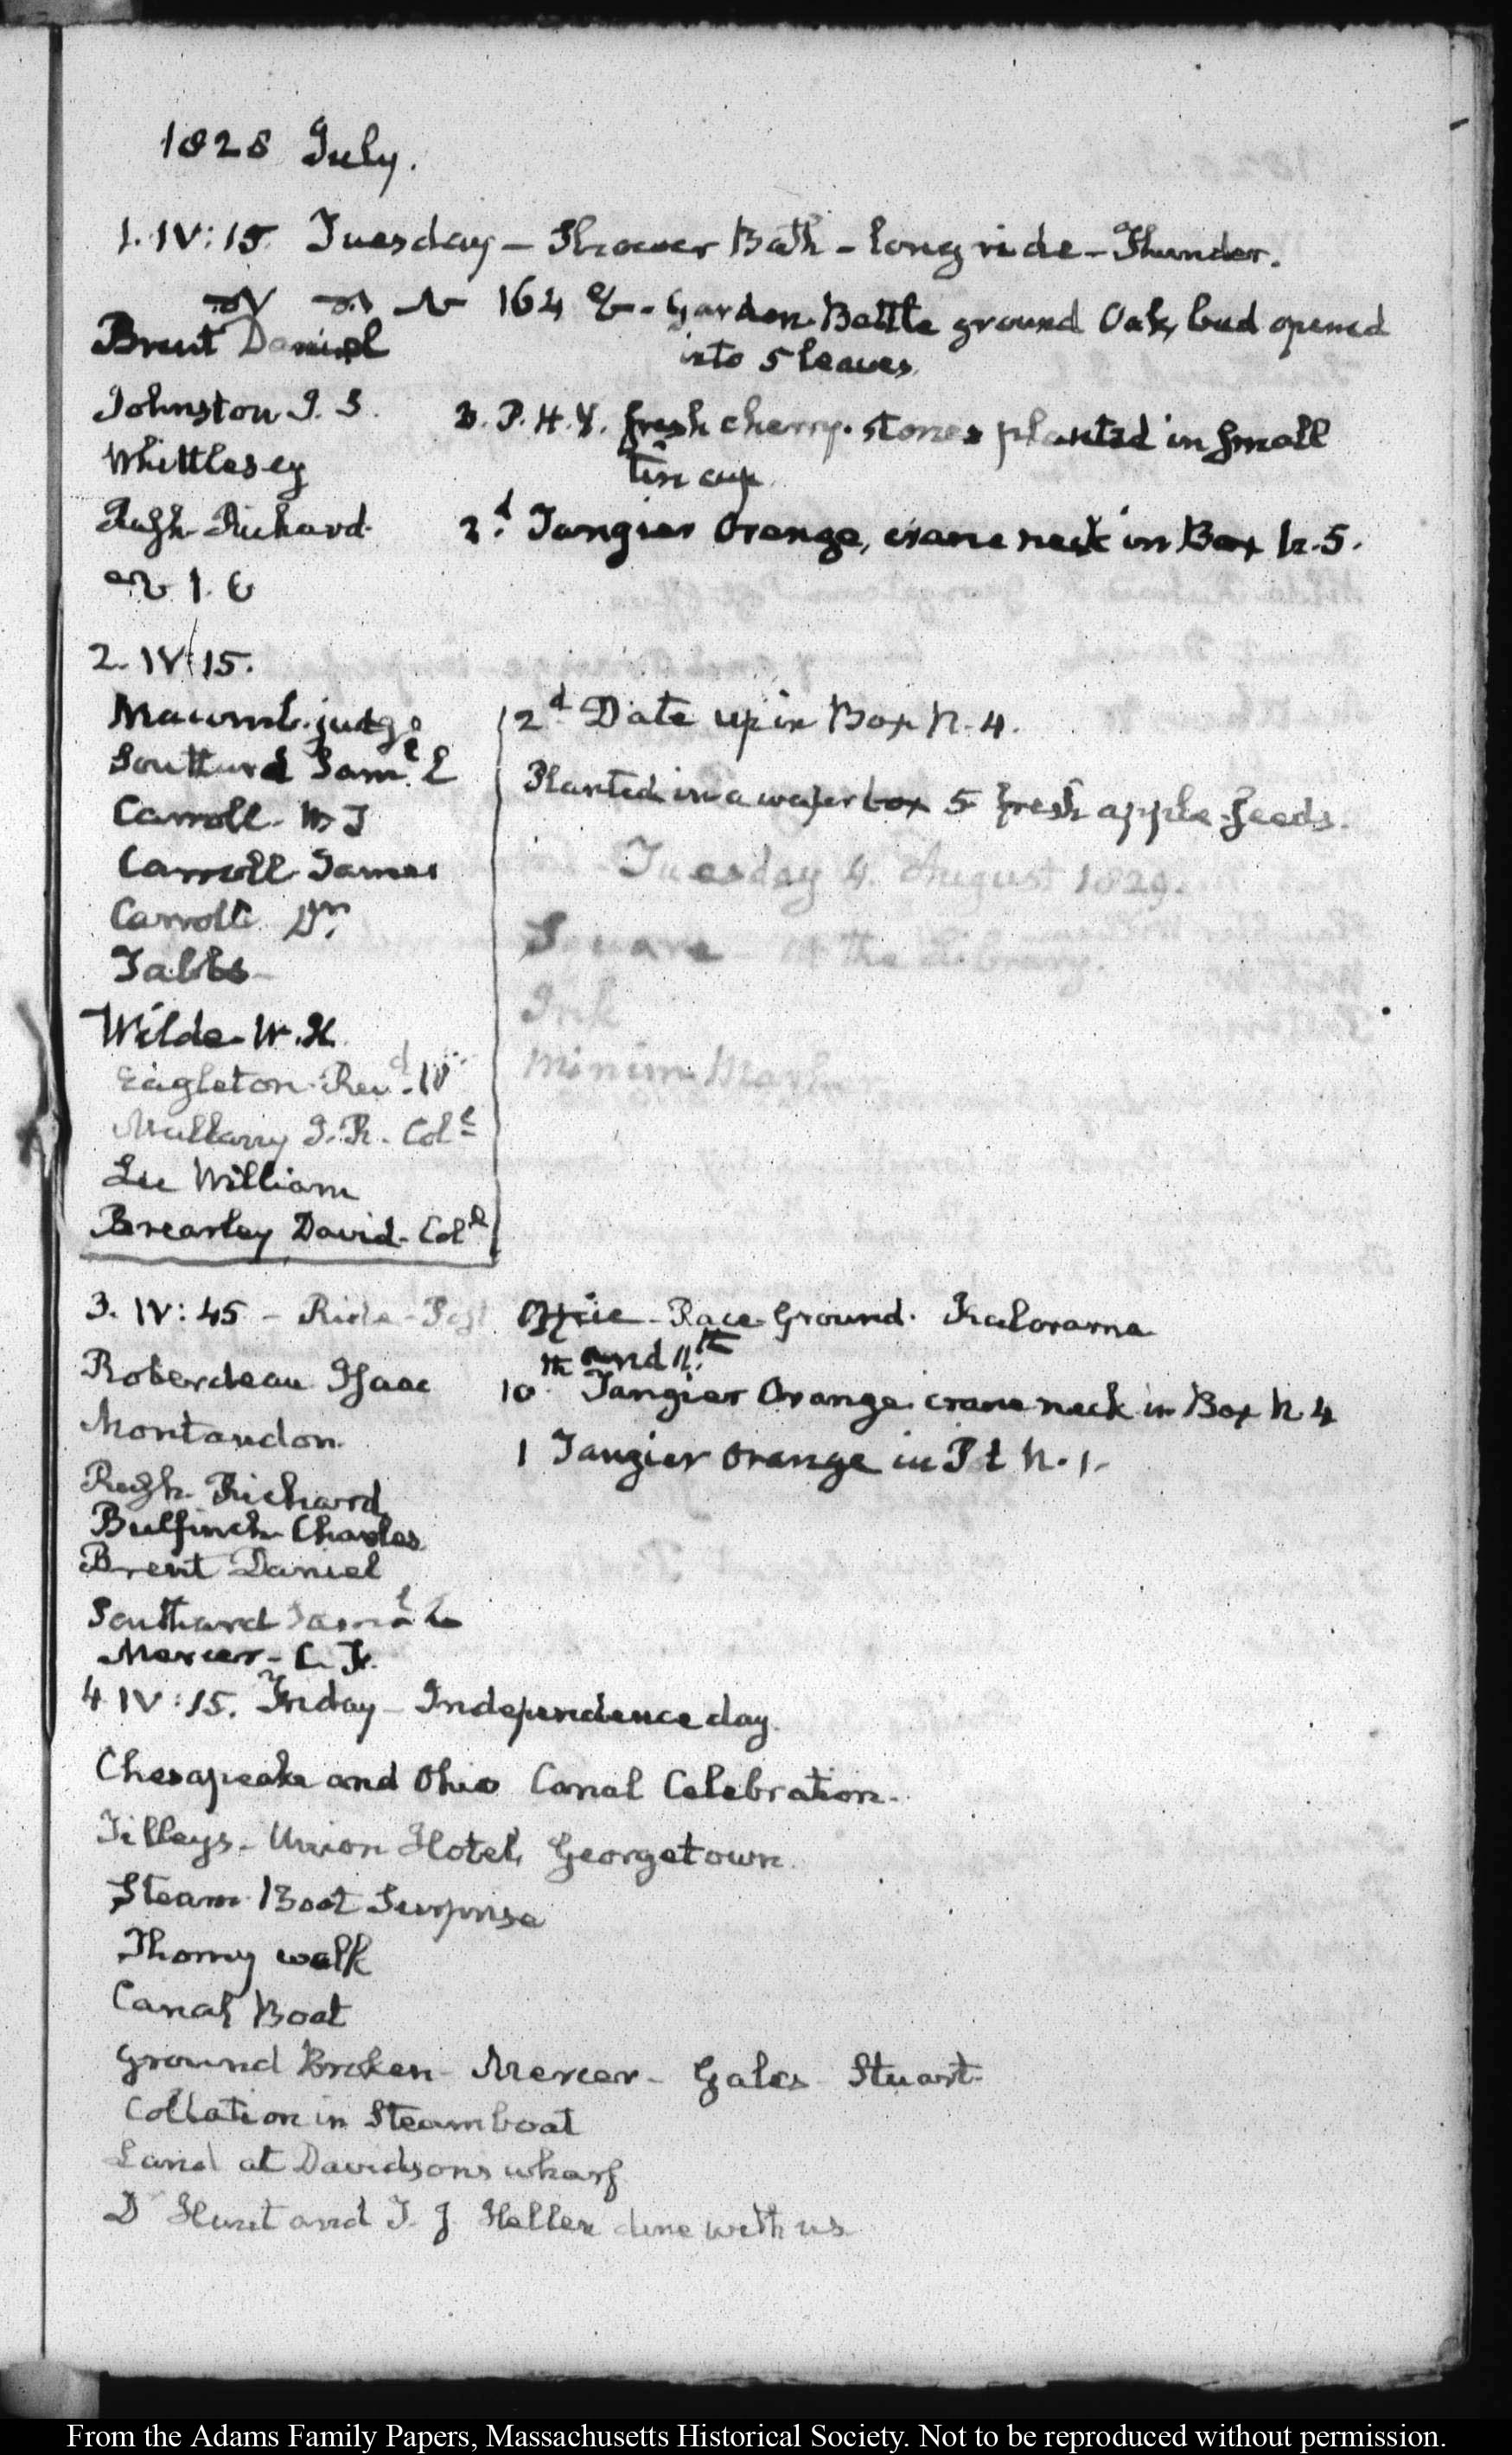 1828 July.
1. IV:15. Tuesday – Shower Bath – long ride – Thunder.
164 Garden. Battle ground Oak, bud opened
into 5 leaves
Brent Daniel
Johnston J. S.
3. P.H.Y. fresh cherry-stones planted in small
tin cup
Whittlesey
Rush Richard
2.d Tangier Orange, crane neck in Box N. 5.
2. IV:15.
Macomb. judge
2d Date up in Box N. 4.
Southard Saml. L
Planted in a wafer box 5 fresh apple-seeds.
Carroll. W T
Tuesday 4. August 1829.
Carroll James
Carroll Dr.
Square – in the Library.
Tabbs
Ink
Wilde. W. H.
Minim
Eagleton. Revd. W
Mullany J. R. Coll
Lee William
Brearley David. Coll
3. IV:45 – Ride – Post Office – Race Ground. Kalorama
Roberdeau Isaac
th and 11.th
10 Tangier Orange. crane neck in Box N. 4
Montandon
1 Tangier Orange in Pt N. 1.
Rush Richard
Bulfinch Charles
Brent Daniel
Southard Saml L
Mercer – C. F.
4 IV:15. Friday – Independence day.
Chesapeake and Ohio Canal Celebration.
Tilleys – Union Hotel, Georgetown.
Steam Boat Surprise
Thorny walk
Canal Boat
Ground Broken – Mercer – Gales Stuart
Collation in Steam boat
Land at Davidsons wharf
D Hunt and T. J. Hellen dine with us
From the Adams Family Papers, Massachusetts Historical Society. Not to be reproduced without permission.